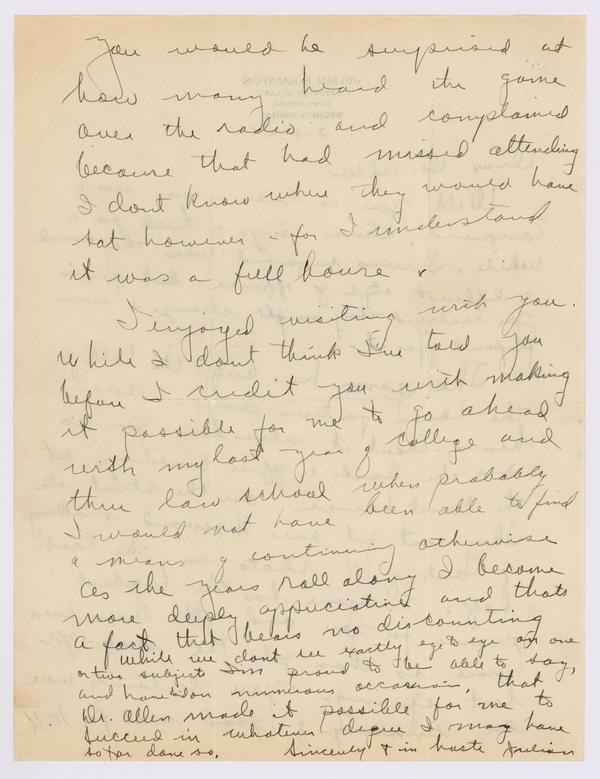 You would be surprised at
how many heard the game
over the radio and complained
because that had missed attending
I dont know where they would have
sat however - for I understand
it was a full house.
I enjoyed visiting with you.
While I dont think I've told you
before I credit you with making
it possible for me to go ahead
with my last year of college and
thru law school when probably
I would not have been able to find
a means of continuing otherwise
As the years roll along I become
more deeply appreciative and thats
a fact that bears no discounting
While we dont see exactly eye to eye on one
or two subjects I'm proud to be able to say,
and have on numerous occasion, that
Dr. Allen made it possible for me to
succeed in whatever degree I may have
so far done so. Sincerely & in haste Julian